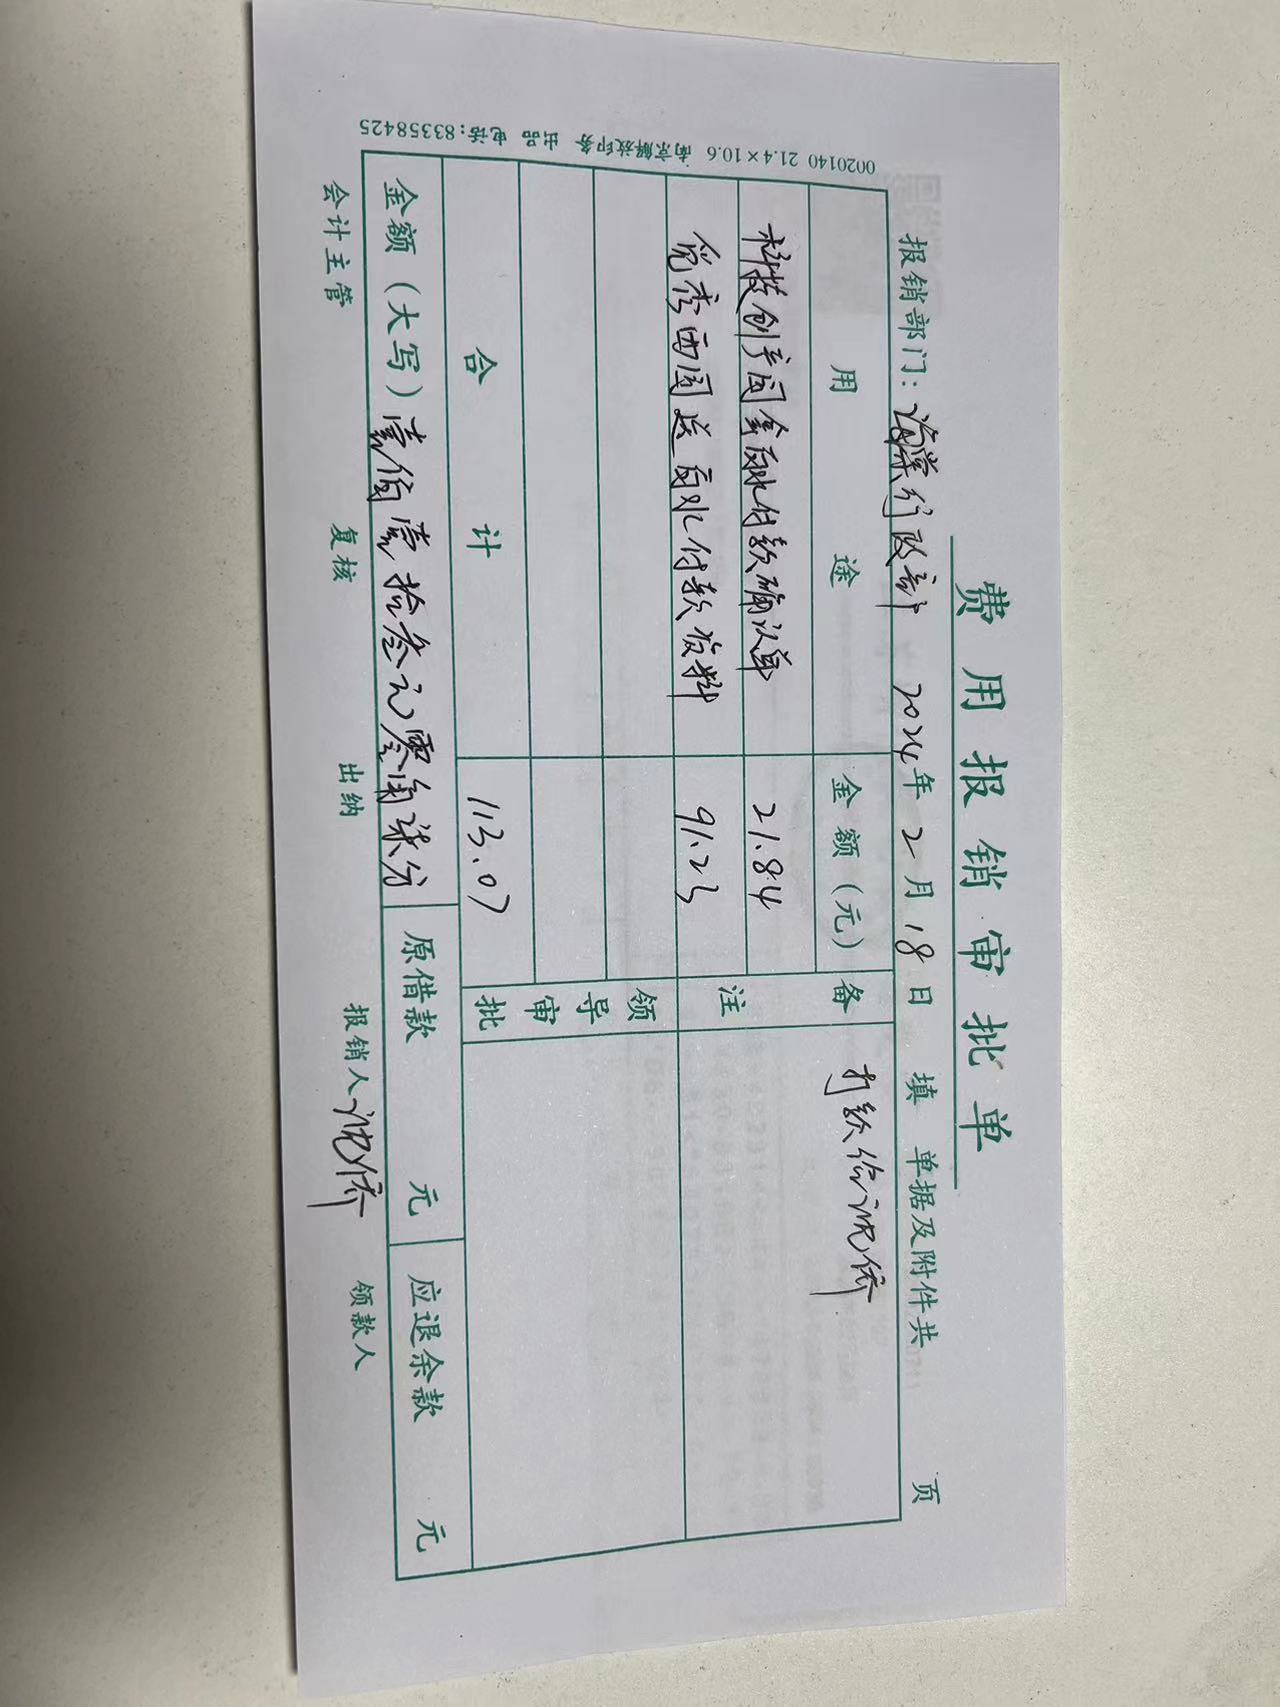 费用报销审批单
报销部门：海棠行政部 2024年2月18日 填 单据及附件共 页
用途 金额（元） 备注 打款给沈侨
科技创产园拿雨水付款确认单 21.84
秀西园送雨水付款资料 91.23
领导审批
合计 113.07
金额（大写）壹佰壹拾叁元零角柒分 原借款 元 应退余款 元
会计主管 复核 出纳 报销人 沈侨 领款人
0020140 21.4×10.6 南京解放印务 出品 电话:83358425